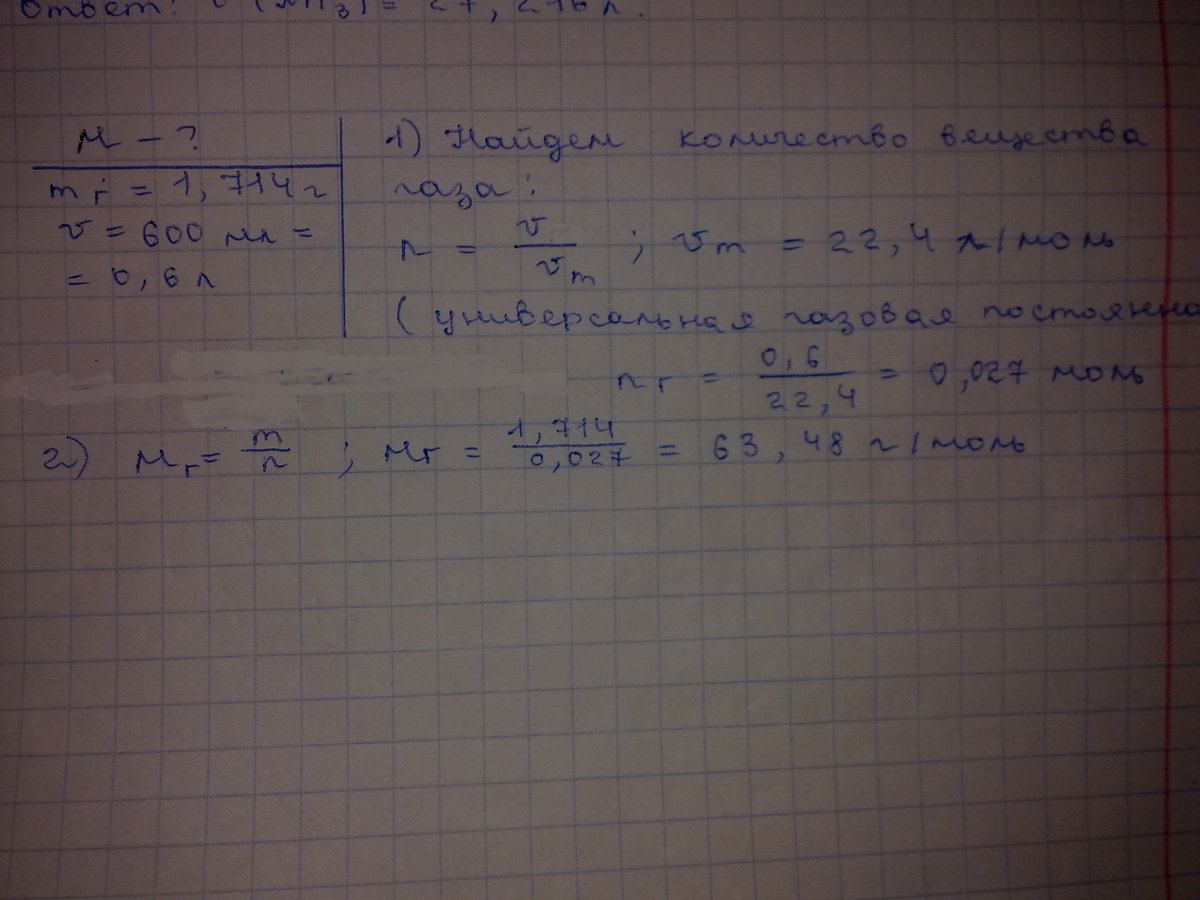 Ответ: V (NH₃) = 27,216 л.
M – ?
mг = 1,714 г
V = 600 мл =
= 0,6 л
1) Найдем количество вещества
газа:
n = V / Vm ; Vm = 22,4 л/моль
(универсальная газовая постоянна
nг = 0,6 / 22,4 = 0,027 моль
2) Mг = m / n ; Mг = 1,714 / 0,027 = 63,48 г/моль